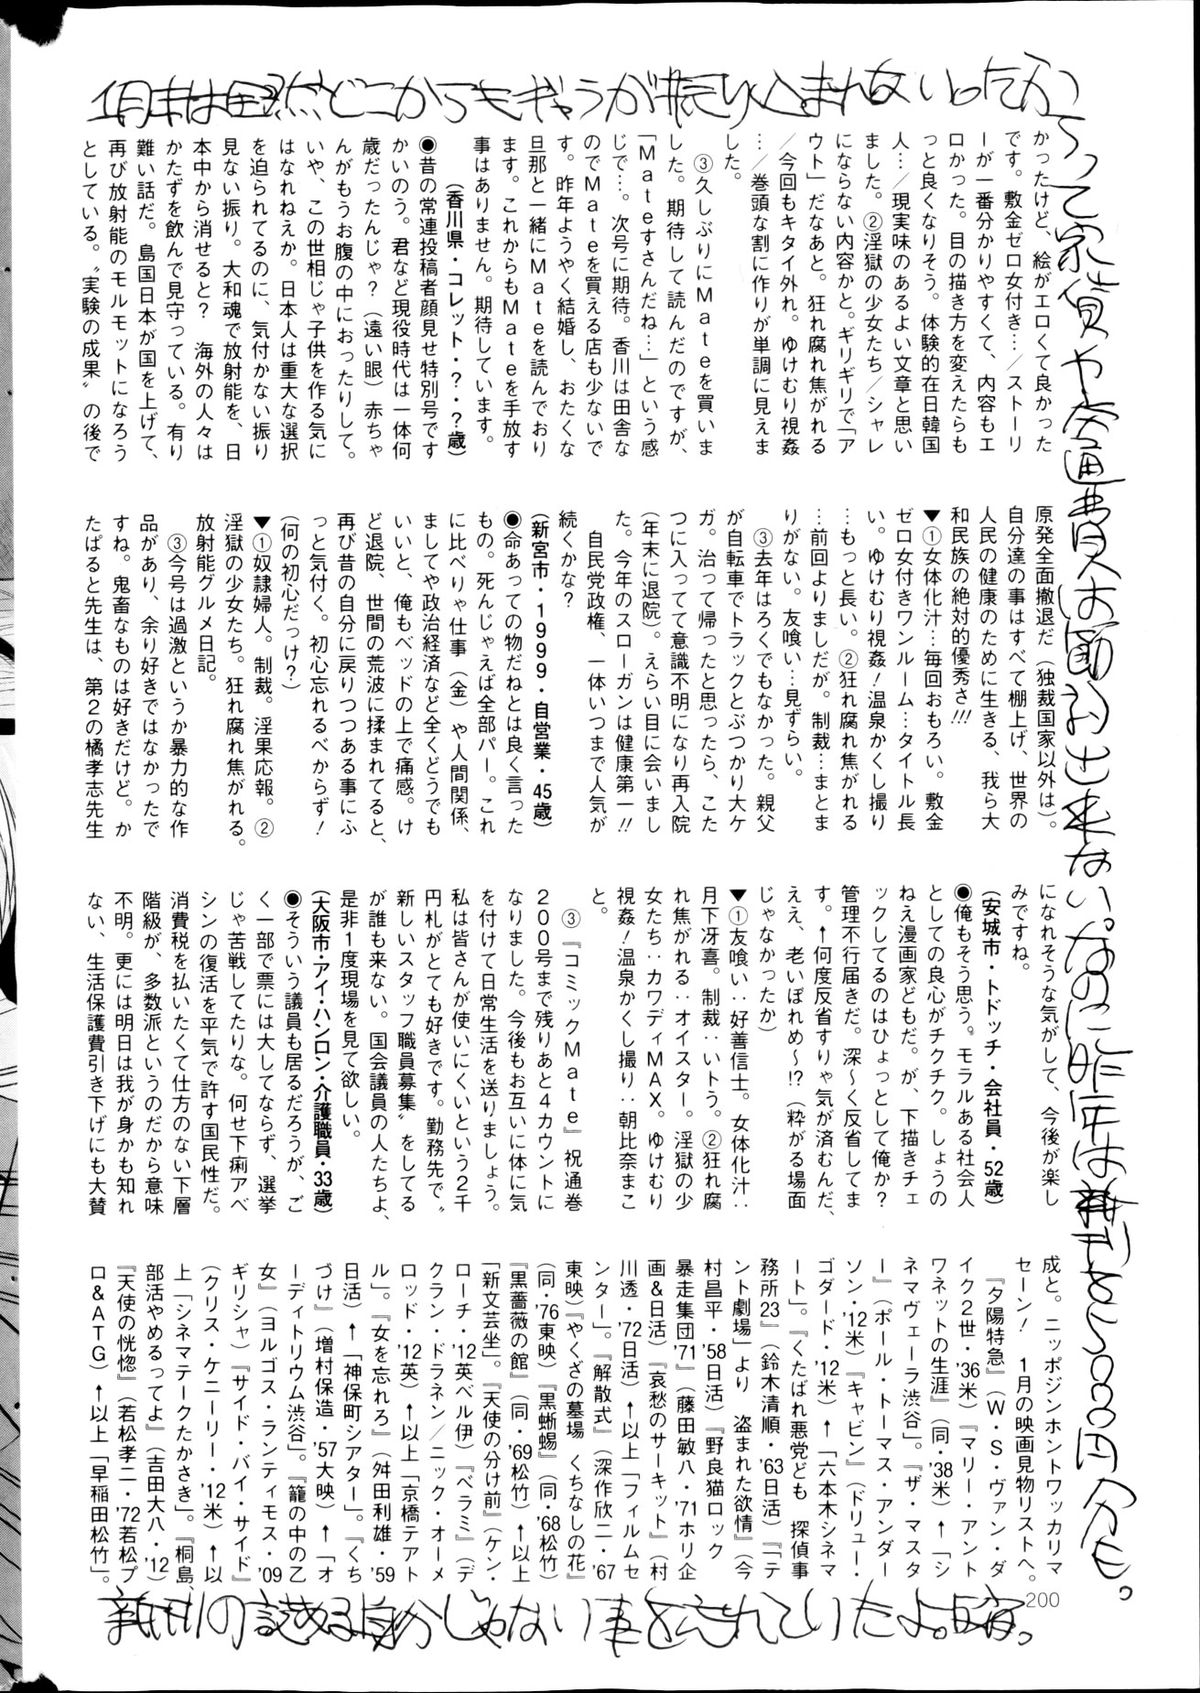 1月末は全然どこからもギャラが振り込まれない。ったからって家賃や交通費は節約出来ない。なのに昨年は新刊を5000円分も。
かったけど、絵がエロくて良かった
です。敷金ゼロ女付き…／ストーリ
ーが一番分かりやすくて、内容もエ
ロかった。目の描き方を変えたらも
っと良くなりそう。体験的在日韓国
人…／現実味のあるよい文章と思い
ました。②淫獄の少女たち／シャレ
にならない内容かと。ギリギリで「ア
ウト」だなあと。狂れ腐れ焦がれる
／今回もキタイ外れ。ゆけむり視姦
…／巻頭な割に作りが単調に見えま
した。
③久しぶりにMateを買いま
した。期待して読んだのですが、
「Mateすさんだね…」という感
じで…。次号に期待。香川は田舎な
のでMateを買える店も少ないで
す。昨年ようやく結婚し、おたくな
旦那と一緒にMateを読んでおり
ます。これからもMateを手放す
事はありません。期待しています。
（香川県・コレット・？・？歳）
●昔の常連投稿者顔見せ特別号です
かいのう。君など現役時代は一体何
歳だったんじゃ？（遠い眼）赤ちゃ
んがもうお腹の中におったりして。
いや、この世相じゃ子供を作る気に
はなれねえか。日本人は重大な選択
を迫られてるのに、気付かない振り
見ない振り。大和魂で放射能を、日
本中から消せると？　海外の人々は
かたずを飲んで見守っている。有り
難い話だ。島国日本が国を上げて、
再び放射能のモルモットになろう
としている。〝実験の成果〟の後で
原発全面撤退だ（独裁国家以外は）。
自分達の事はすべて棚上げ、世界の
人民の健康のために生きる、我ら大
和民族の絶対的優秀さ!!!
▼①女体化汁…毎回おもろい。敷金
ゼロ女付きワンルーム…タイトル長
い。ゆけむり視姦！温泉かくし撮り
…もっと長い。②狂れ腐れ焦がれる
…前回よりましだが。制裁…まとま
りがない。友喰い…見ずらい。
③去年はろくでもなかった。親父
が自転車でトラックとぶつかり大ケ
ガ。治って帰ったと思ったら、こた
つに入ってて意識不明になり再入院
（年末に退院）。えらい目に会いまし
た。今年のスローガンは健康第一!!
自民党政権、一体いつまで人気が
続くかな？
（新宮市・1999・自営業・45歳）
●命あっての物だねとは良く言った
もの。死んじゃえば全部パー。これ
に比べりゃ仕事（金）や人間関係、
ましてや政治経済など全くどうでも
いいと、俺もベッドの上で痛感。け
ど退院、世間の荒波に揉まれてると、
再び昔の自分に戻りつつある事にふ
っと気付く。初心忘れるべからず！
（何の初心だっけ？）
▼①奴隷婦人。制裁。淫果応報。②
淫獄の少女たち。狂れ腐れ焦がれる。
放射能グルメ日記。
③今号は過激というか暴力的な作
品があり、余り好きではなかったで
すね。鬼畜なものは好きだけど。か
たぱると先生は、第２の橘孝志先生
になれそうな気がして、今後が楽し
みですね。
（安城市・トドッチ・会社員・52歳）
●俺もそう思う。モラルある社会人
としての良心がチクチク。しょうの
ねえ漫画家どもだ。が、下描きチェ
ックしてるのはひょっとして俺か？
管理不行届きだ。深～く反省してま
す。↑何度反省すりゃ気が済むんだ、
ええ、老いぼれめ～!?（粋がる場面
じゃなかったか）
▼①友喰い‥好善信士。女体化汁‥
月下冴喜。制裁‥いトう。②狂れ腐
れ焦がれる‥オイスター。淫獄の少
女たち‥カワディMAX。ゆけむり
視姦！温泉かくし撮り‥朝比奈まこ
と。
③『コミックMate』祝通巻
200号まで残りあと４カウントに
なりました。今後もお互いに体に気
を付けて日常生活を送りましょう。
私は皆さんが使いにくいという２千
円札がとても好きです。勤務先で〝
新しいスタッフ職員募集〟をしてる
が誰も来ない。国会議員の人たちよ、
是非１度現場を見て欲しい。
（大阪市・アイ・ハンロン・介護職員・33歳）
●そういう議員も居るだろうが、ご
く一部で票には大してならず、選挙
じゃ苦戦してたりな。何せ下痢アベ
シンの復活を平気で許す国民性だ。
消費税を払いたくて仕方のない下層
階級が、多数派というのだから意味
不明。更には明日は我が身かも知れ
ない、生活保護費引き下げにも大賛
成と。ニッポジンホントワッカリマ
セーン！　１月の映画見物リストへ。
『夕陽特急』（W・S・ヴァン・ダ
イク２世・'36米）『マリー・アント
ワネットの生涯』（同・'38米）↑「シ
ネマヴェーラ渋谷」。『ザ・マスタ
ー』（ポール・トーマス・アンダー
ソン・'12米）『キャビン』（ドリュー・
ゴダード・'12米）↑「六本木シネマ
ート」。『くたばれ悪党ども　探偵事
務所23』（鈴木清順・'63日活）『テ
ント劇場』より　盗まれた欲情』（今
村昌平・'58日活）『野良猫ロック
暴走集団'71』（藤田敏八・'71ホリ企
画＆日活）『哀愁のサーキット』（村
川透・'72日活）↑以上「フィルムセ
ンター」。『解散式』（深作欣二・'67
東映）『やくざの墓場　くちなしの花』
（同・'76東映）『黒蜥蜴』（同・'68松竹）
『黒薔薇の館』（同・'69松竹）↑以上
「新文芸坐」。『天使の分け前』（ケン・
ローチ・'12英ベル伊）『ベラミ』（デ
クラン・ドネラン／ニック・オーメ
ロッド・'12英）↑以上「京橋テアト
ル」。『女を忘れろ』（舛田利雄・'59
日活）↑「神保町シアター」。『くち
づけ』（増村保造・'57大映）↑「オ
ーディトリウム渋谷」。『籠の中の乙
女』（ヨルゴス・ランティモス・'09
ギリシャ）『サイド・バイ・サイド』
（クリス・ケニーリー・'12米）↑以
上「シネマテークたかさき」。『桐島、
部活やめるってよ』（吉田大八・'12）
『天使の恍惚』（若松孝二・'72若松プ
ロ＆ATG）↑以上「早稲田松竹」。
新刊の読める身分じゃない事を忘れていたよ。反省。
200